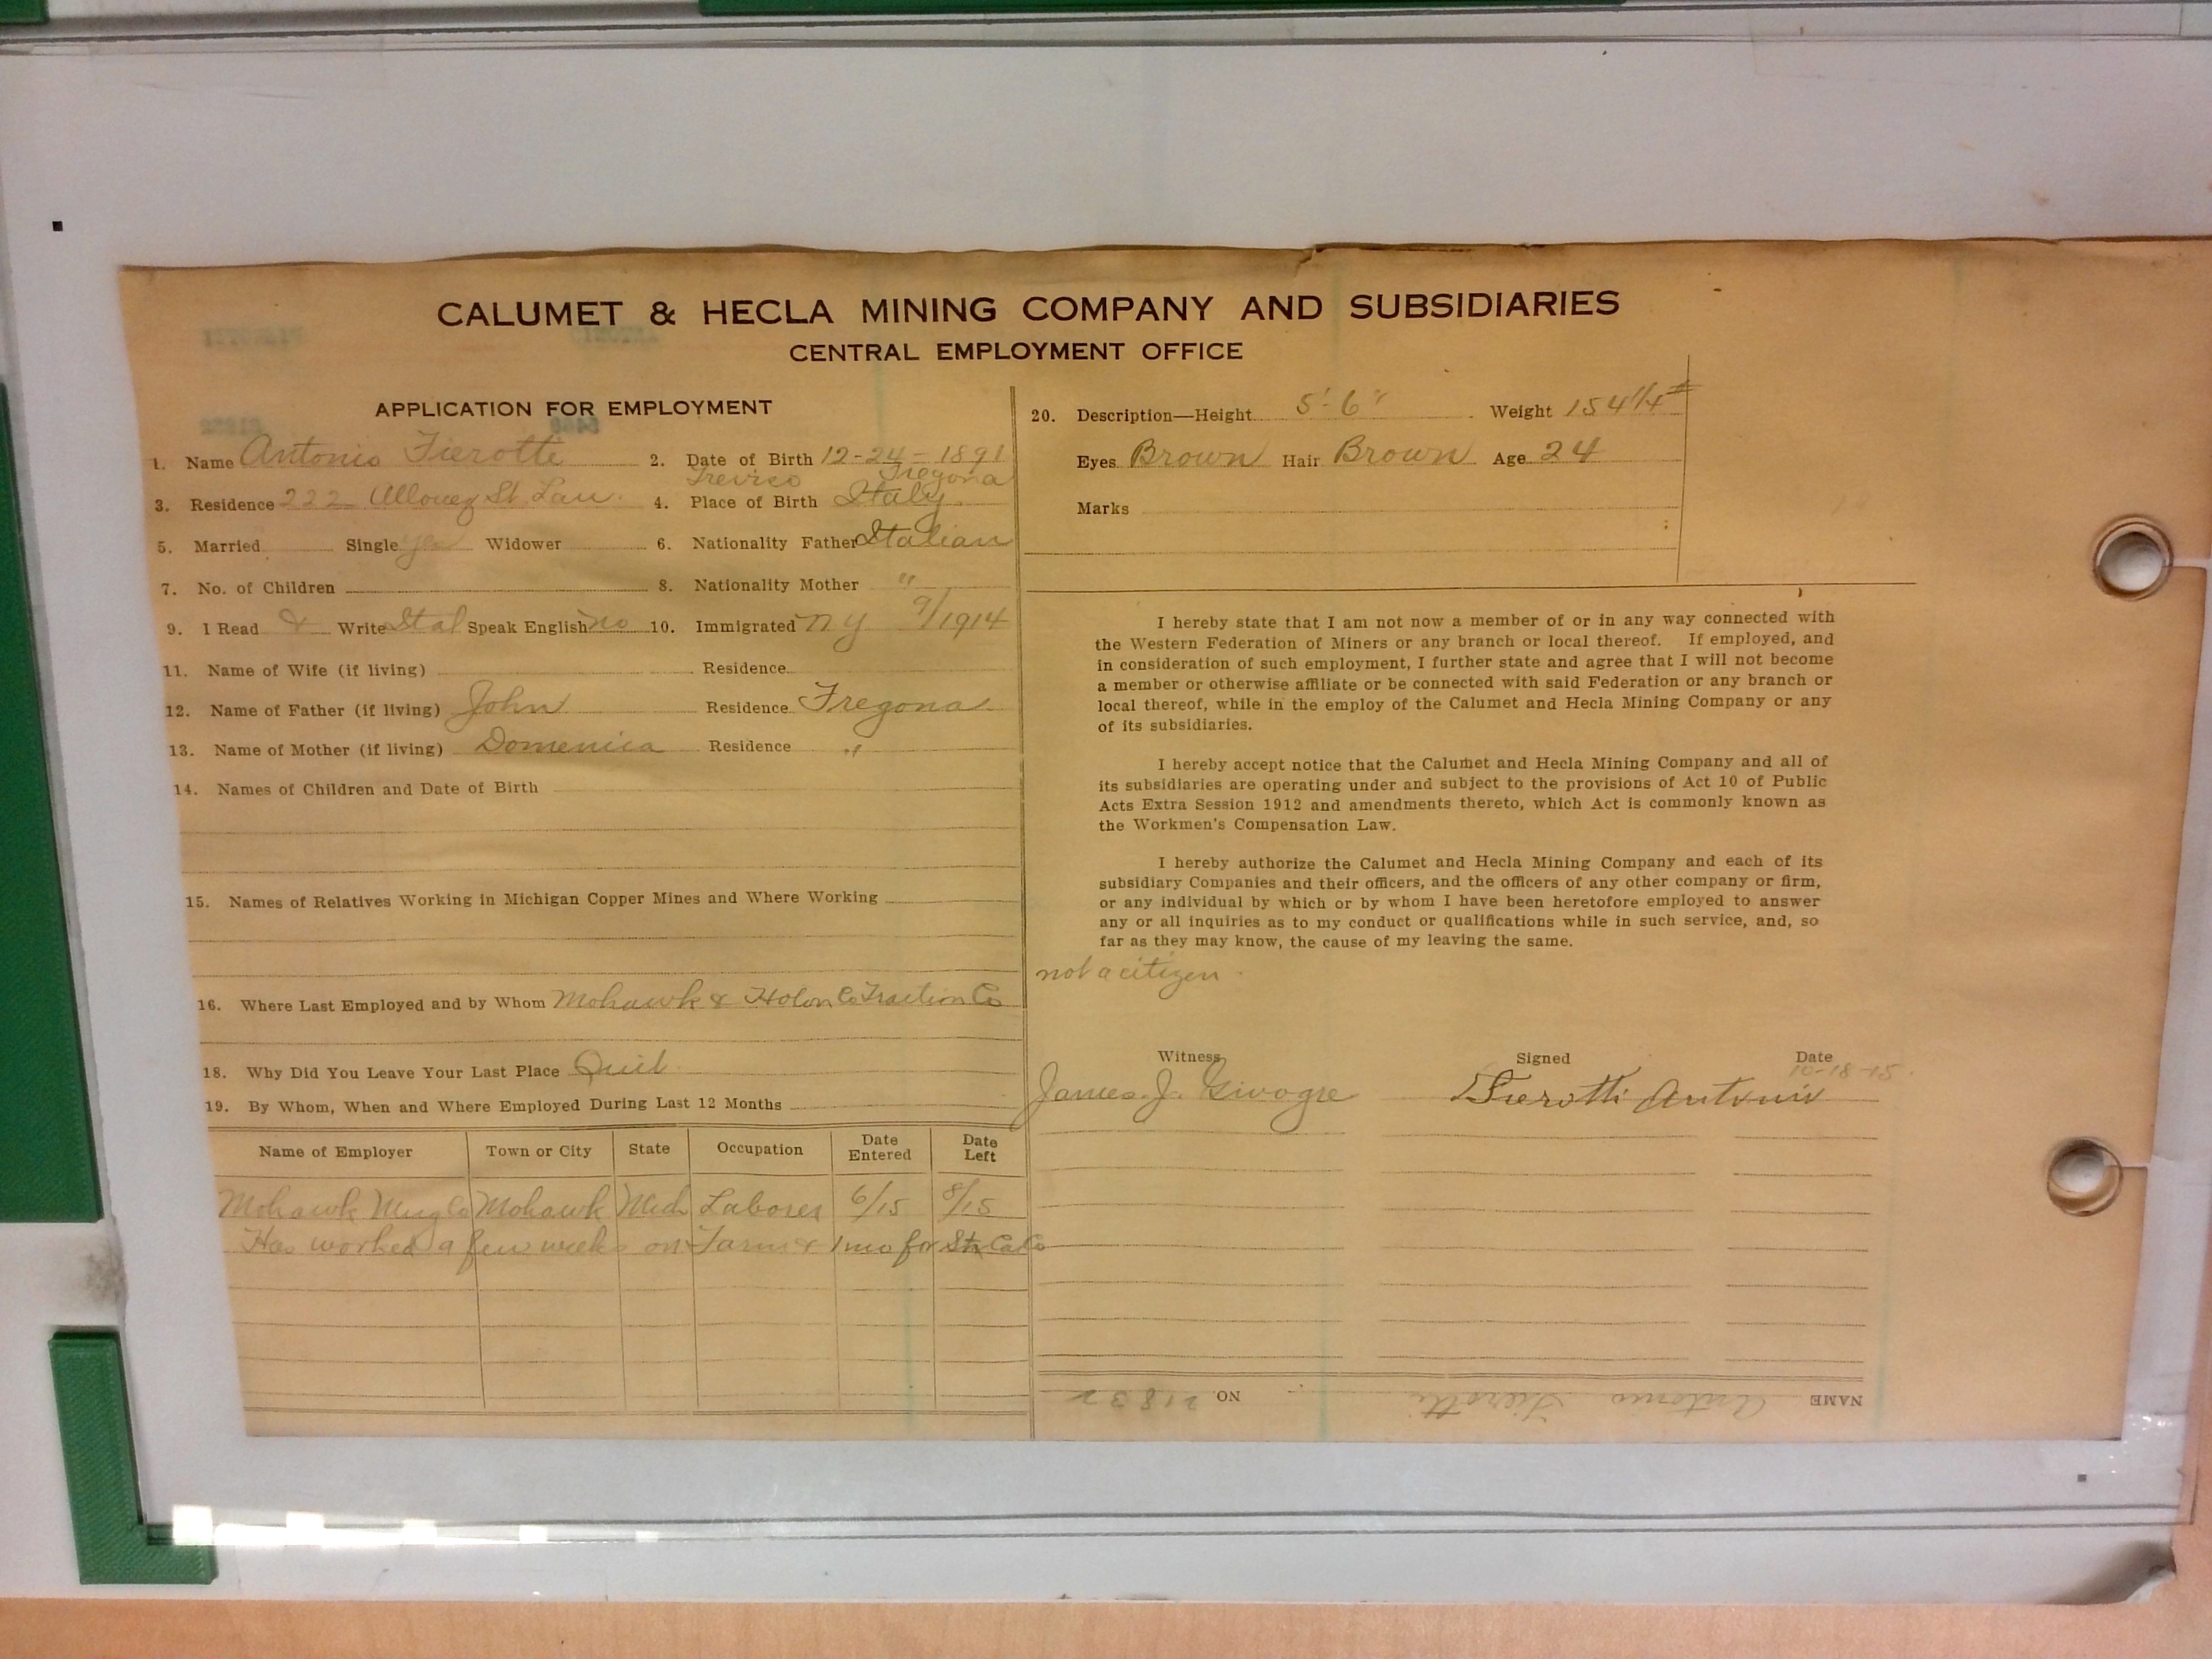 CALUMET & HECLA MINING COMPANY AND SUBSIDIARIES
CENTRAL EMPLOYMENT OFFICE
APPLICATION FOR EMPLOYMENT
1. Name Antonio Fierotti 2. Date of Birth 12-24-1891
Treviso Fregona
3. Residence 222 Allouez St. Lau. 4. Place of Birth Italy
5. Married Single yes Widower 6. Nationality Father Italian
7. No. of Children 8. Nationality Mother "
9. I Read & Write Ital Speak English no 10. Immigrated N Y 9/1914
11. Name of Wife (if living) Residence
12. Name of Father (if living) John Residence Fregona
13. Name of Mother (if living) Domenica Residence "
14. Names of Children and Date of Birth
15. Names of Relatives Working in Michigan Copper Mines and Where Working
16. Where Last Employed and by Whom Mohawk & Hoton Co Traction Co
18. Why Did You Leave Your Last Place Quit
19. By Whom, When and Where Employed During Last 12 Months
Name of Employer Town or City State Occupation Date Entered Date Left
Mohawk Mng Co Mohawk Mich Laborer 6/15 8/15
Has worked a few weeks on Farm & 1 mo for St Ca Co
20. Description—Height 5'-6" Weight 154 1/4 #
Eyes Brown Hair Brown Age 24
Marks
I hereby state that I am not now a member of or in any way connected with
the Western Federation of Miners or any branch or local thereof. If employed, and
in consideration of such employment, I further state and agree that I will not become
a member or otherwise affiliate or be connected with said Federation or any branch or
local thereof, while in the employ of the Calumet and Hecla Mining Company or any
of its subsidiaries.
I hereby accept notice that the Calumet and Hecla Mining Company and all of
its subsidiaries are operating under and subject to the provisions of Act 10 of Public
Acts Extra Session 1912 and amendments thereto, which Act is commonly known as
the Workmen's Compensation Law.
I hereby authorize the Calumet and Hecla Mining Company and each of its
subsidiary Companies and their officers, and the officers of any other company or firm,
or any individual by which or by whom I have been heretofore employed to answer
any or all inquiries as to my conduct or qualifications while in such service, and, so
far as they may know, the cause of my leaving the same.
not a citizen
Witness Signed Date
10-18-15
James. J. Givogre Fierotti Antonio
NAME Antonio Fierotti NO. 21832